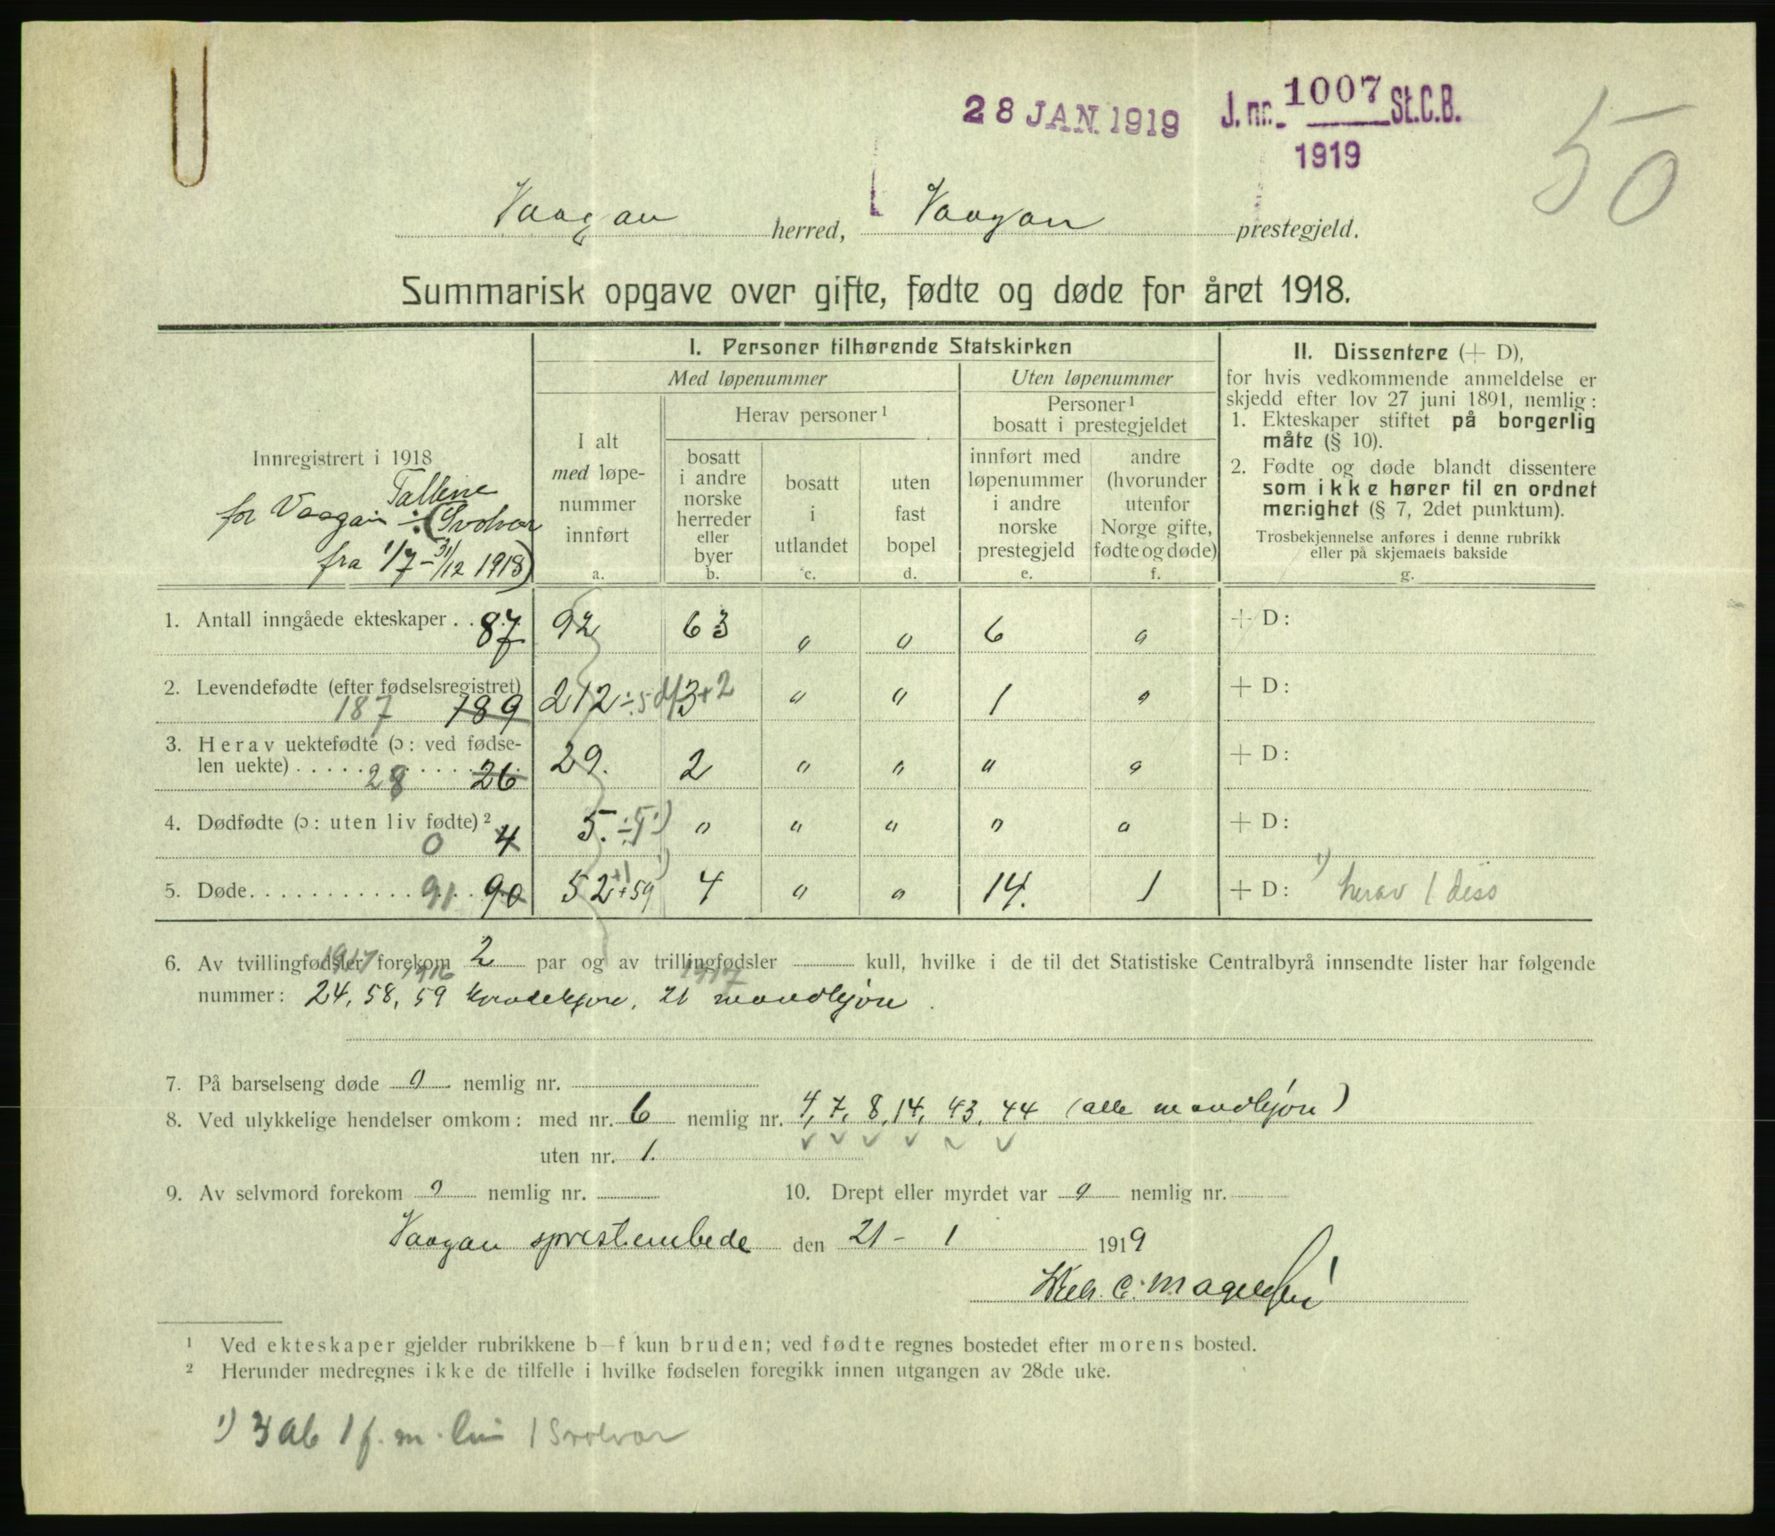 28 JAN. 1919 J. nr. 1007 St.C.B.
1919
50
Vaagan herred, Vaagan prestegjeld.
Summarisk opgave over gifte, fødte og døde for året 1918.
Innregistrert i 1918
Tallene
for Vaagan ÷ (Svolvær
fra 1/7 – 31/12 1918)
I. Personer tilhørende Statskirken
Med løpenummer
Uten løpenummer
I alt
med løpe-
nummer
innført
a.
Herav personer¹
bosatt
i andre
norske
herreder
eller
byer
b.
bosatt
i
utlandet
c.
uten
fast
bopel
d.
Personer¹
bosatt i prestegjeldet
innført med
løpenummer
i andre
norske
prestegjeld
e.
andre
(hvorunder
utenfor
Norge gifte,
fødte og døde)
f.
II. Dissentere (÷ D),
for hvis vedkommende anmeldelse er
skjedd efter lov 27 juni 1891, nemlig:
1. Ekteskaper stiftet på borgerlig
måte (§ 10).
2. Fødte og døde blandt dissentere
som ikke hører til en ordnet
menighet (§ 7, 2det punktum).
Trosbekjennelse anføres i denne rubrikk
eller på skjemaets bakside
g.
1. Antall inngåede ekteskaper . . 87 92 63 " " 6 " ÷ D:
2. Levendefødte (efter fødselsregistret) 187 189 212 ÷ 5 d 13 + 2 " " 1 " + D:
3. Herav uektefødte (ɔ: ved fødse-
len uekte) . . . . . 28 26 29. 2 " " " " + D:
4. Dødfødte (ɔ: uten liv fødte)² 0 4 5. ÷ 5 ¹) " " " " " + D:
5. Døde . . . . . 91 90 52 +1 +59 ¹) 4 " " 14. 1 + D: ¹) herav 1 diss
6. Av tvillingfødsler forekom 2 par og av trillingfødsler kull, hvilke i de til det Statistiske Centralbyrå innsendte lister har følgende
1917 1916 1917
nummer: 24, 58, 59 kvindekjøn, 21 mandkjøn.
7. På barselseng døde 0 nemlig nr.
8. Ved ulykkelige hendelser omkom: med nr. 6 nemlig nr. 4, 7, 8, 14, 43, 44 (alle mandkjøn)
uten nr. 1.
9. Av selvmord forekom 0 nemlig nr. 10. Drept eller myrdet var 0 nemlig nr.
Vaagan sprestembede den 21 – 1 1919
C. Magelssen
¹ Ved ekteskaper gjelder rubrikkene b—f kun bruden; ved fødte regnes bostedet efter morens bosted.
² Herunder medregnes ikke de tilfelle i hvilke fødselen foregikk innen utgangen av 28de uke.
¹) 3 ab 1 f. m. liv 1 Svolvær